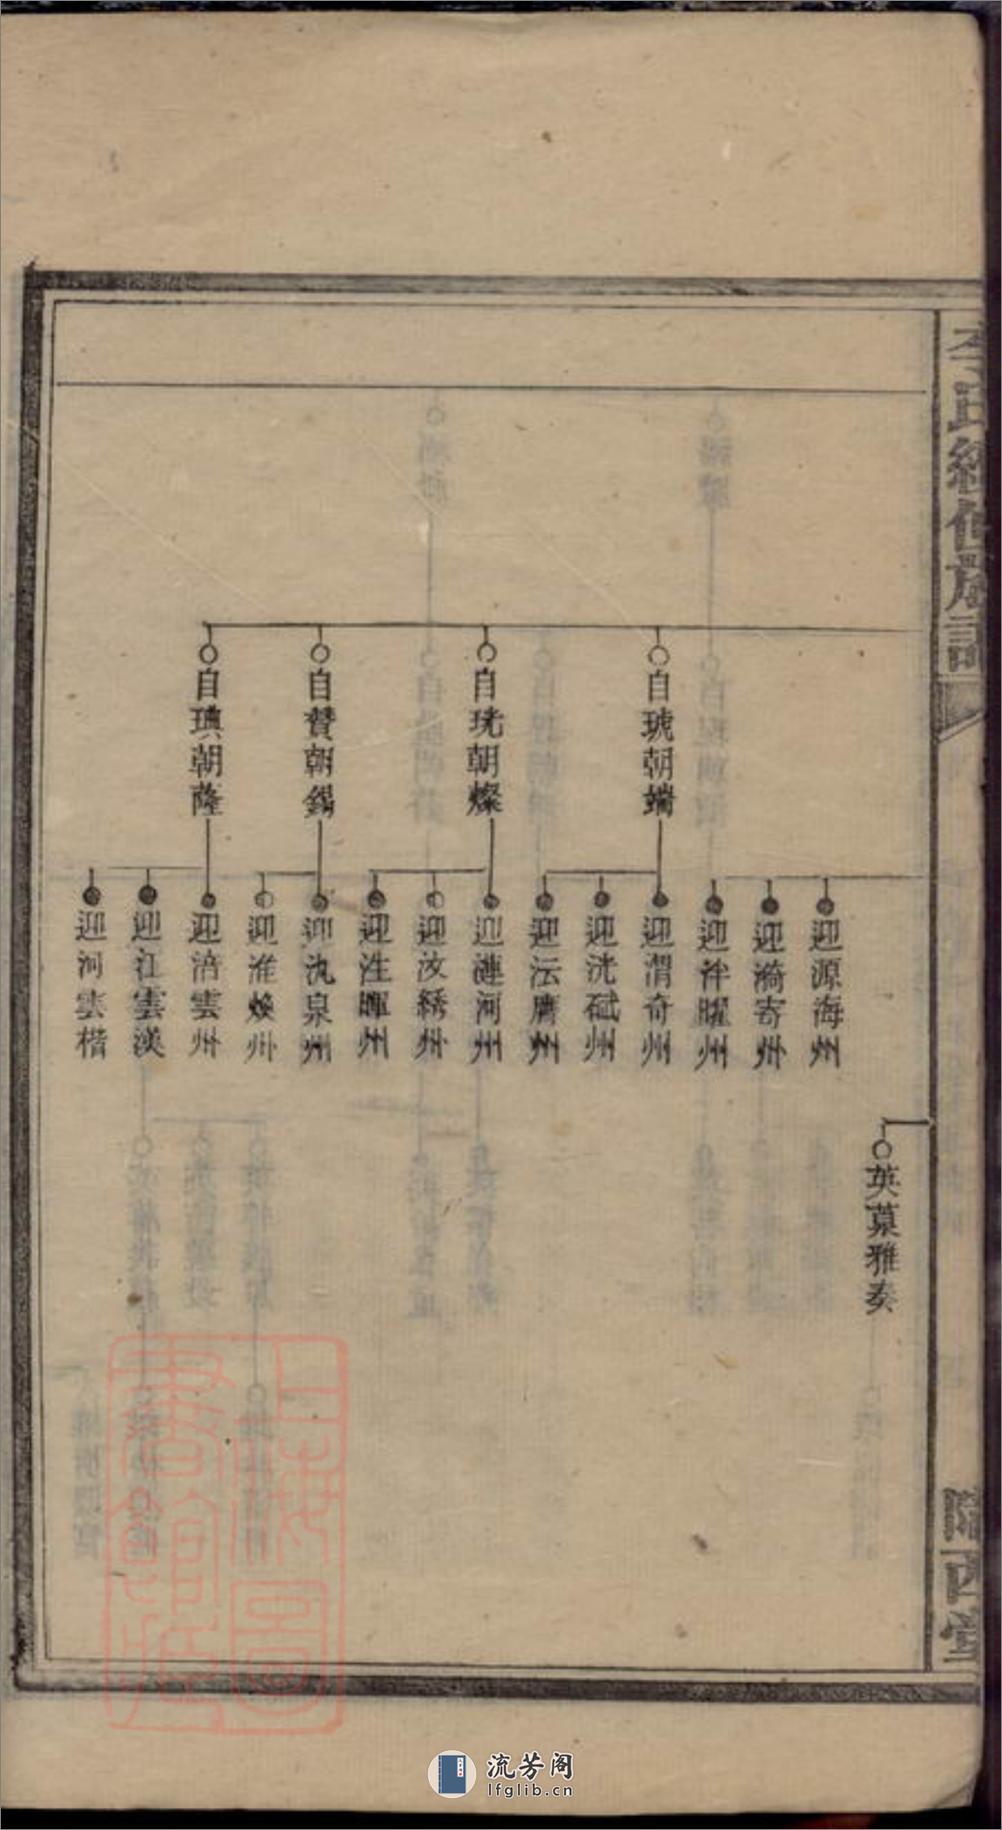 李氏續修族譜
隴西堂
自琥朝端
自珖朝燦
自贊朝錫
自琠朝薩
迎源海州
迎漪寄州
迎泮曜州
迎渭奇州
迎洸斌州
迎沄膺州
迎漣河州
迎汝綉州
迎泩暉州
迎氿泉州
迎淮煥州
迎涪雲州
迎江雲漢
迎河雲楷
英菓雅奏
上海圖書館藏
流芳阁
lfglib.cn